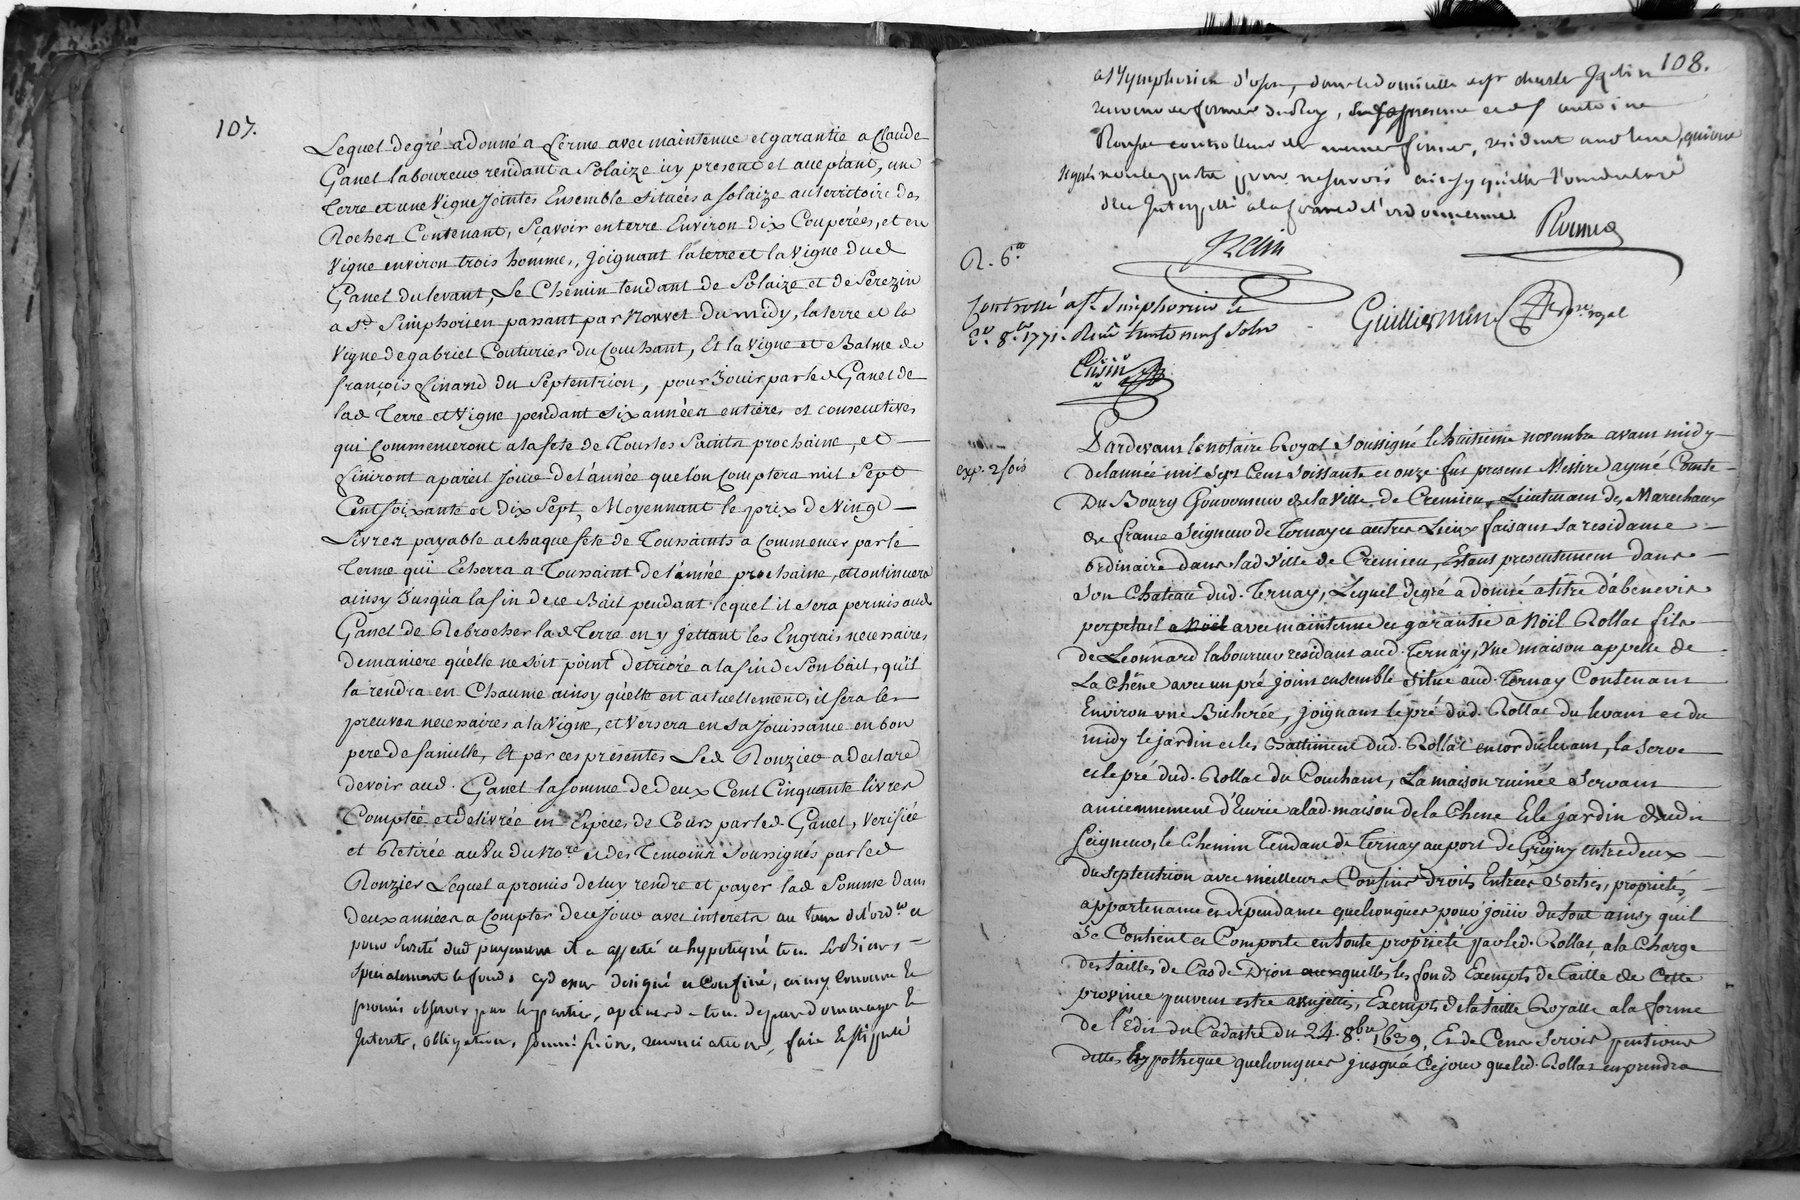 107.
Lequel degré a donné a ferme avec maintenue et garantie a Claude
Ganet laboureur rendant a Solaize icy present et acceptant, une
Terre et une Vigne Jointes Ensemble Situées a Solaize au territoire des
Rocher Contenant, Sçavoir en terre Environ dix Couperées, et en
Vigne environ trois hommes, Joignant la terre et la Vigne dud
Ganet du levant, Le Chemin tendant de Solaize et de Serezin
a St Simphorien passant par Rouvet Du midy, la terre et la
Vigne de gabriel Couturier du Couchant, Et la Vigne et Balme de
françois Finand du Septentrion, pour Jouir par led Ganet de
lad Terre et Vigne pendant Six années entieres et consecutives
qui Commenceront a la fete de Tous les Saints prochaine, et
finiront a pareil Jour de l'année que l'on Comptera mil Sept
Cent soixante et dix Sept, Moyennant le prix de Vingt
Livres payable a chaque fete de Toussaints a Commencer par le
Terme qui Echerra a Toussaint de l'année prochaine, et continuera
ainsy Jusqu'a la fin de ce Bail pendant lequel il sera permis aud
Ganet de Rebrocher lad Terre en y Jettant les Engrais necessaires
de maniere qu'elle ne soit point detriorée a la fin de Son bail, qu'il
la rendra en Chaume ainsy qu'elle est actuellement, il fera les
preuves necessaires a la Vigne, et Versera en Sa Jouissance en bon
pere de famille, Et par ces presentes Led Ronzier a declaré
devoir aud. Ganet la somme de deux Cent Cinquante livres
Comptée et delivrée en Especes de Cours par led. Ganet, Verifiée
et Retirée au Vu du Nore. et des Temoins Soussignés par led
Ronzier Lequel a promis de luy rendre et payer lad Somme dans
deux années a Compter de ce Jour avec interets au taux de l'ordce et
pour sureté dud payement il a affecté et hypotequé tous ses Biens
specialement le fonds cy dessus designé et Confiné, ainsy convenu et
promis observer par les parties, a peine de tous depens dommages et
Interets, obligation, soumission, renonciation, fait et stipulé
108.
a St Symphorien d'Ozon, dans le domicile de sr charles
receveur des fermes du Roy, en sa presence et de sr antoine
controlleur des memes fermes, resident aud lieu, qui ont
signés non les parties pour ne sçavoir ainsy qu'elles l'ont declaré
de ce Interpellé a la forme de l'ordonnance
R. 6.a
Guilliermin nre royal
Controllé a St Simphorien le
8.bre 1771. Reçu trente neuf sols
Pardevant le notaire Royal Soussigné le huitieme novembre avant midy
de l'année mil Sept Cent Soissante et onze fut present Messire aymé Comte
exp. 2 fois
Du Bourg Gouverneur de la Ville de Cremieu, Lieutenant des Marechaux
de france Seigneur de Ternay et autres Lieux faisant Sa residance
ordinaire dans lad Ville de Cremieu, Etant presentement dans
Son Chateau dud. Ternay, Lequel degré a donné a titre d'abenevis
perpetuel a Noël avec maintenue et garantie a Nöil Rollat fils
de Léonnard laboureur residant aud. Ternay, Une maison appellé de
La Chêne avec un pré joint ensemble Situé aud. Ternay Contenant
Environ une Bicherée, Joignant le pré dud. Rollat du levant et du
midy le jardin et les Battiment dud. Rollat encor du levant, la Serve
et le pré dud. Rollat du Couchant, La maison ruinée Servant
anciennement d'Ecurie a lad. maison de la Chene Et le jardin dudit
Seigneur, le Chemin Tendant de Ternay au port de Grigny entredeux
du Septentrion avec meilleurs Confins droits Entrées Sorties, proprietés,
appartenance et dependance quelconques pour jouir du tout ainsy qu'il
Se Contient et Comporte en toute proprieté par led. Rollat a la Charge
des tailles de Cas de Droit auxquelles les fonds Exempts de taille de Cette
province peuvent estre assujettis, Exempts de la taille Royalle a la forme
de l'Edit du Cadastre du 24. 8.bre 1639, Et de Cens Servis pentions
dettes hypotheque quelconques jusqu'a Ce jour que led. Rollat en prendra